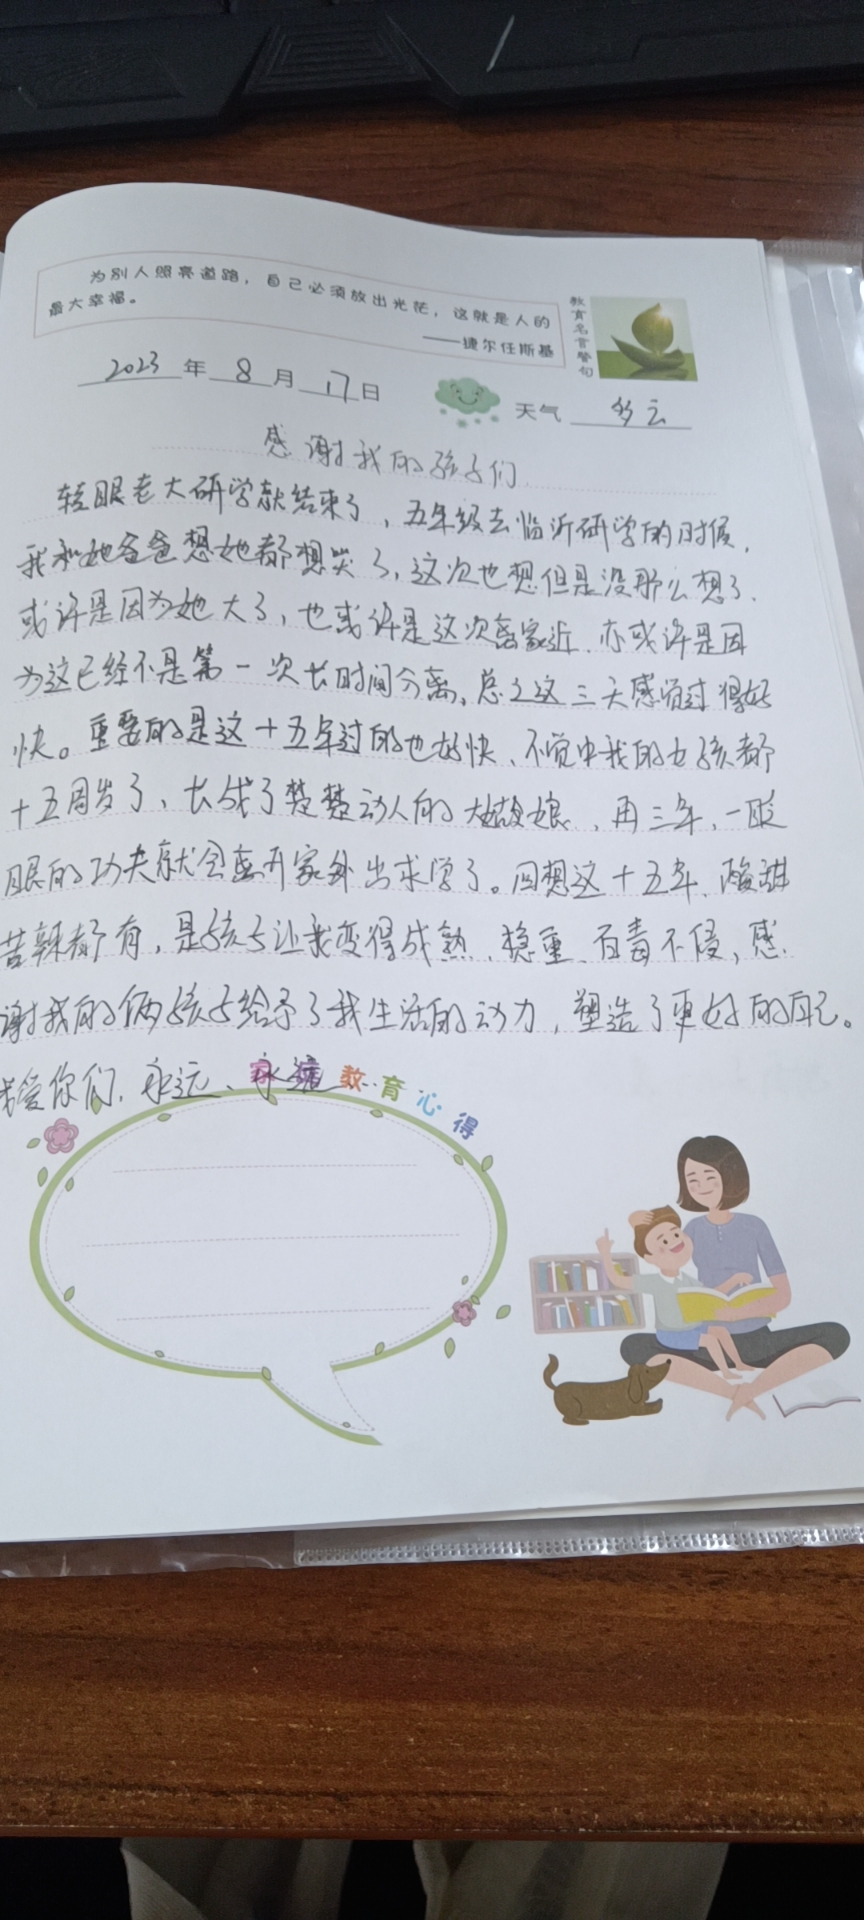 为别人照亮道路，自己必须放出光芒，这就是人的
最大幸福。
——捷尔任斯基
教育名言警句
2023年8月17日
天气 多云
感谢我的孩子们
转眼老大研学就结束了，五年级去临沂研学的时候，
我和她爸爸想她都想哭了，这次也想但是没那么想了、
或许是因为她大了，也或许是这次离家近、亦或许是因
为这已经不是第一次长时间分离，总之这三天感觉过得好
快。重要的是这十五年过的也好快、不觉中我的女孩都
十五周岁了、长成了楚楚动人的大姑娘，再三年，一眨
眼的功夫就会离开家外出求学了。回想这十五年、酸甜
苦辣都有，是孩子让我变得成熟、稳重、百毒不侵，感
谢我的俩孩子给予了我生活的动力，塑造了更好的自己。
我爱你们、永远、永远
家庭教育心得